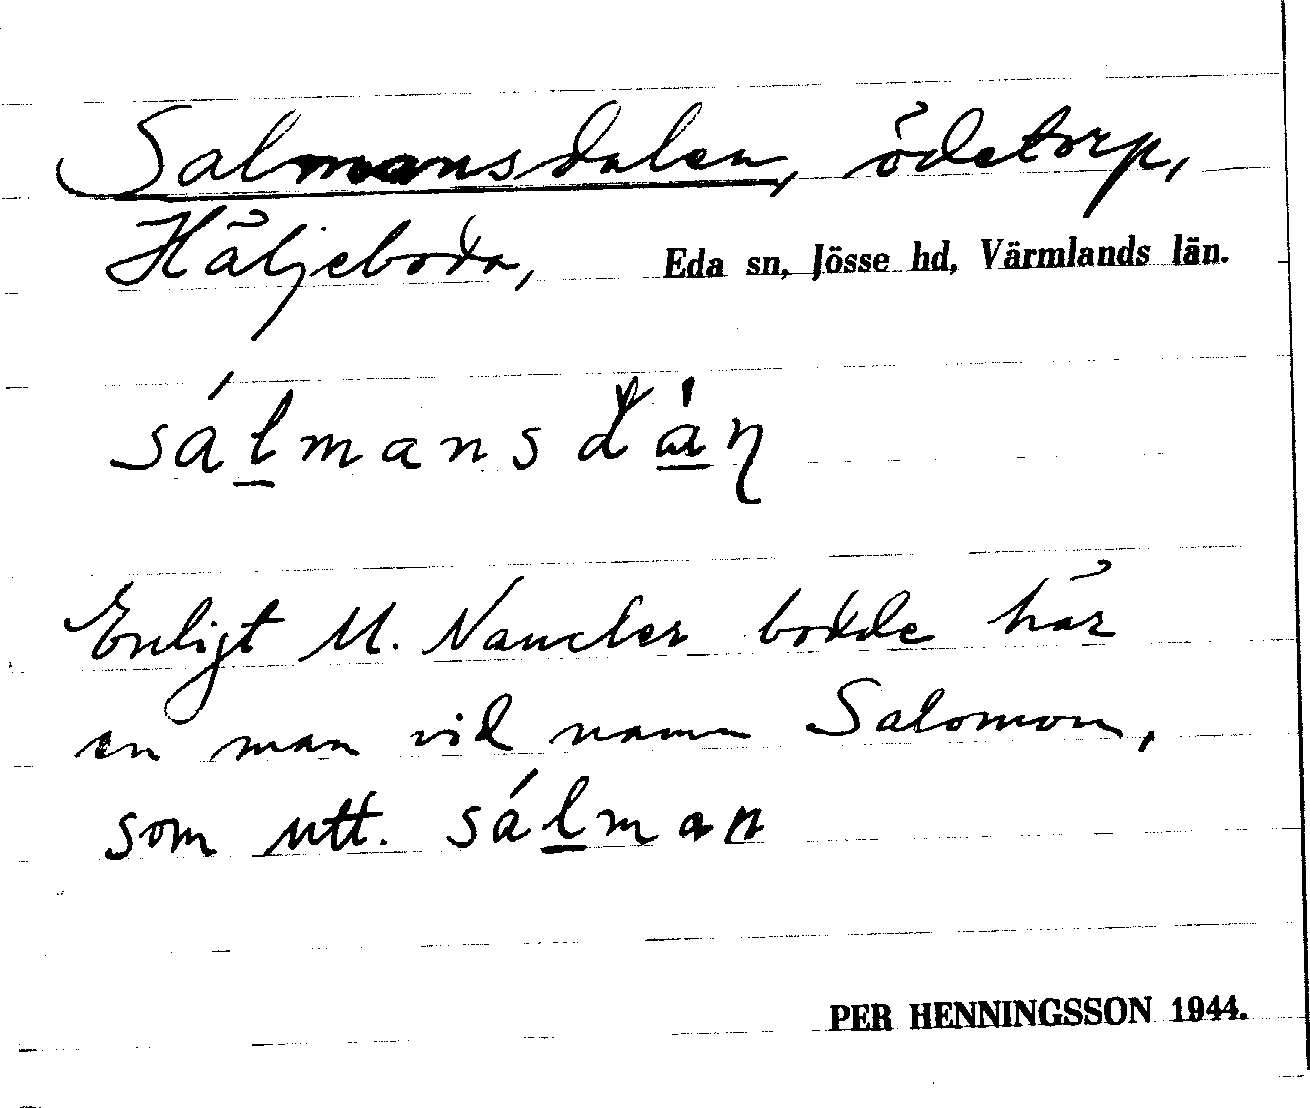 Salmansdalen, ödetorp,
Häljeboda, Eda sn, Jösse hd, Värmlands län.
sálmansdàη
Enligt M. Nancler bodde här
en man vid namn Salomon,
som utt. sálman
PER HENNINGSSON 1944.